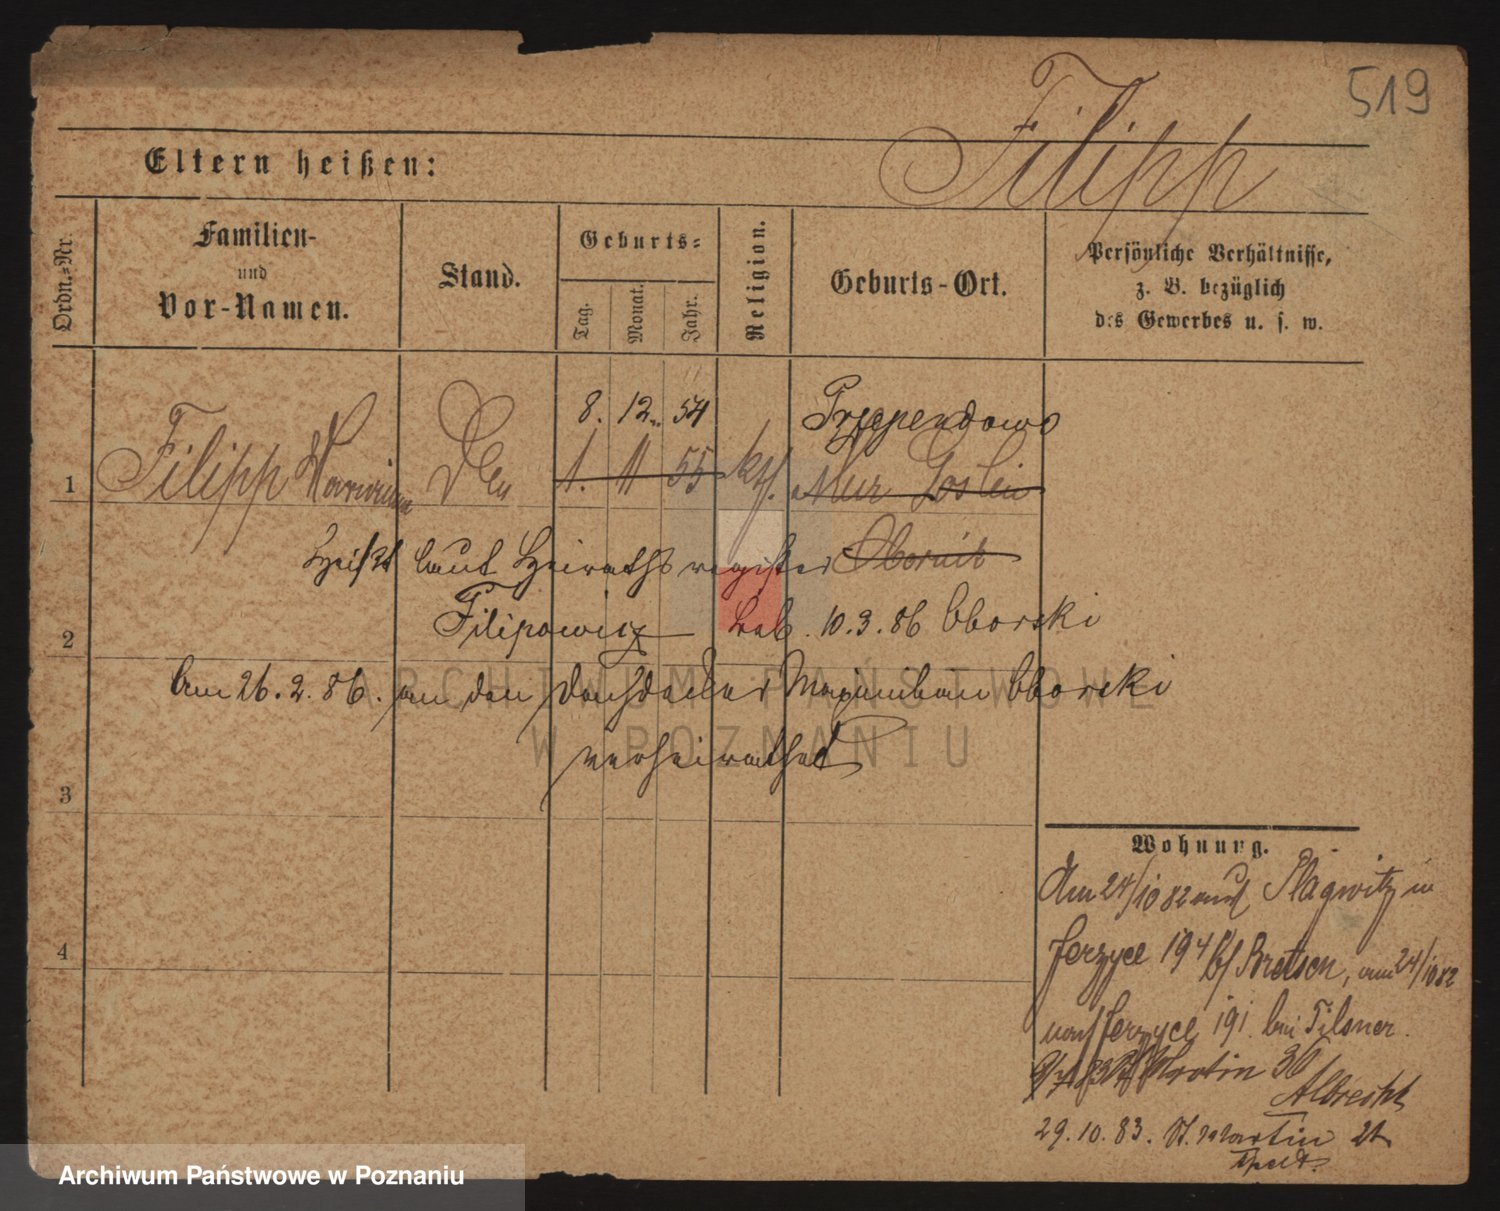 519
Filipp
Eltern heißen:
Ordn.-Nr.
Familien-
und
Vor-Namen.
Stand.
Geburts-
Tag.
Monat.
Jahr.
Religion.
Geburts-Ort.
Persönliche Verhältnisse,
z. B. bezüglich
des Gewerbes u. s. w.
8. 12. 54 Przependowo
1 Filipp 1. 11 55 kth. Mur Goslin
heißt laut Heirathsregister Obornik
Filipowicz Leb. 10.3.86 Oborski
2
Am 26.2.86. an den Dachdecker Maximilian Oborski
verheirathet
3
4
ARCHIWUM PAŃSTWOWE
W POZNANIU
Wohnung.
Am 24/10 82 aus Plagwitz in
Jerzyce 194 b/ Bretsch, am 24/10 82
nach Jerzyce 191 bei Pilsner.
Martin 36
Albrecht
29.10.83. St. Martin 21
Archiwum Państwowe w Poznaniu